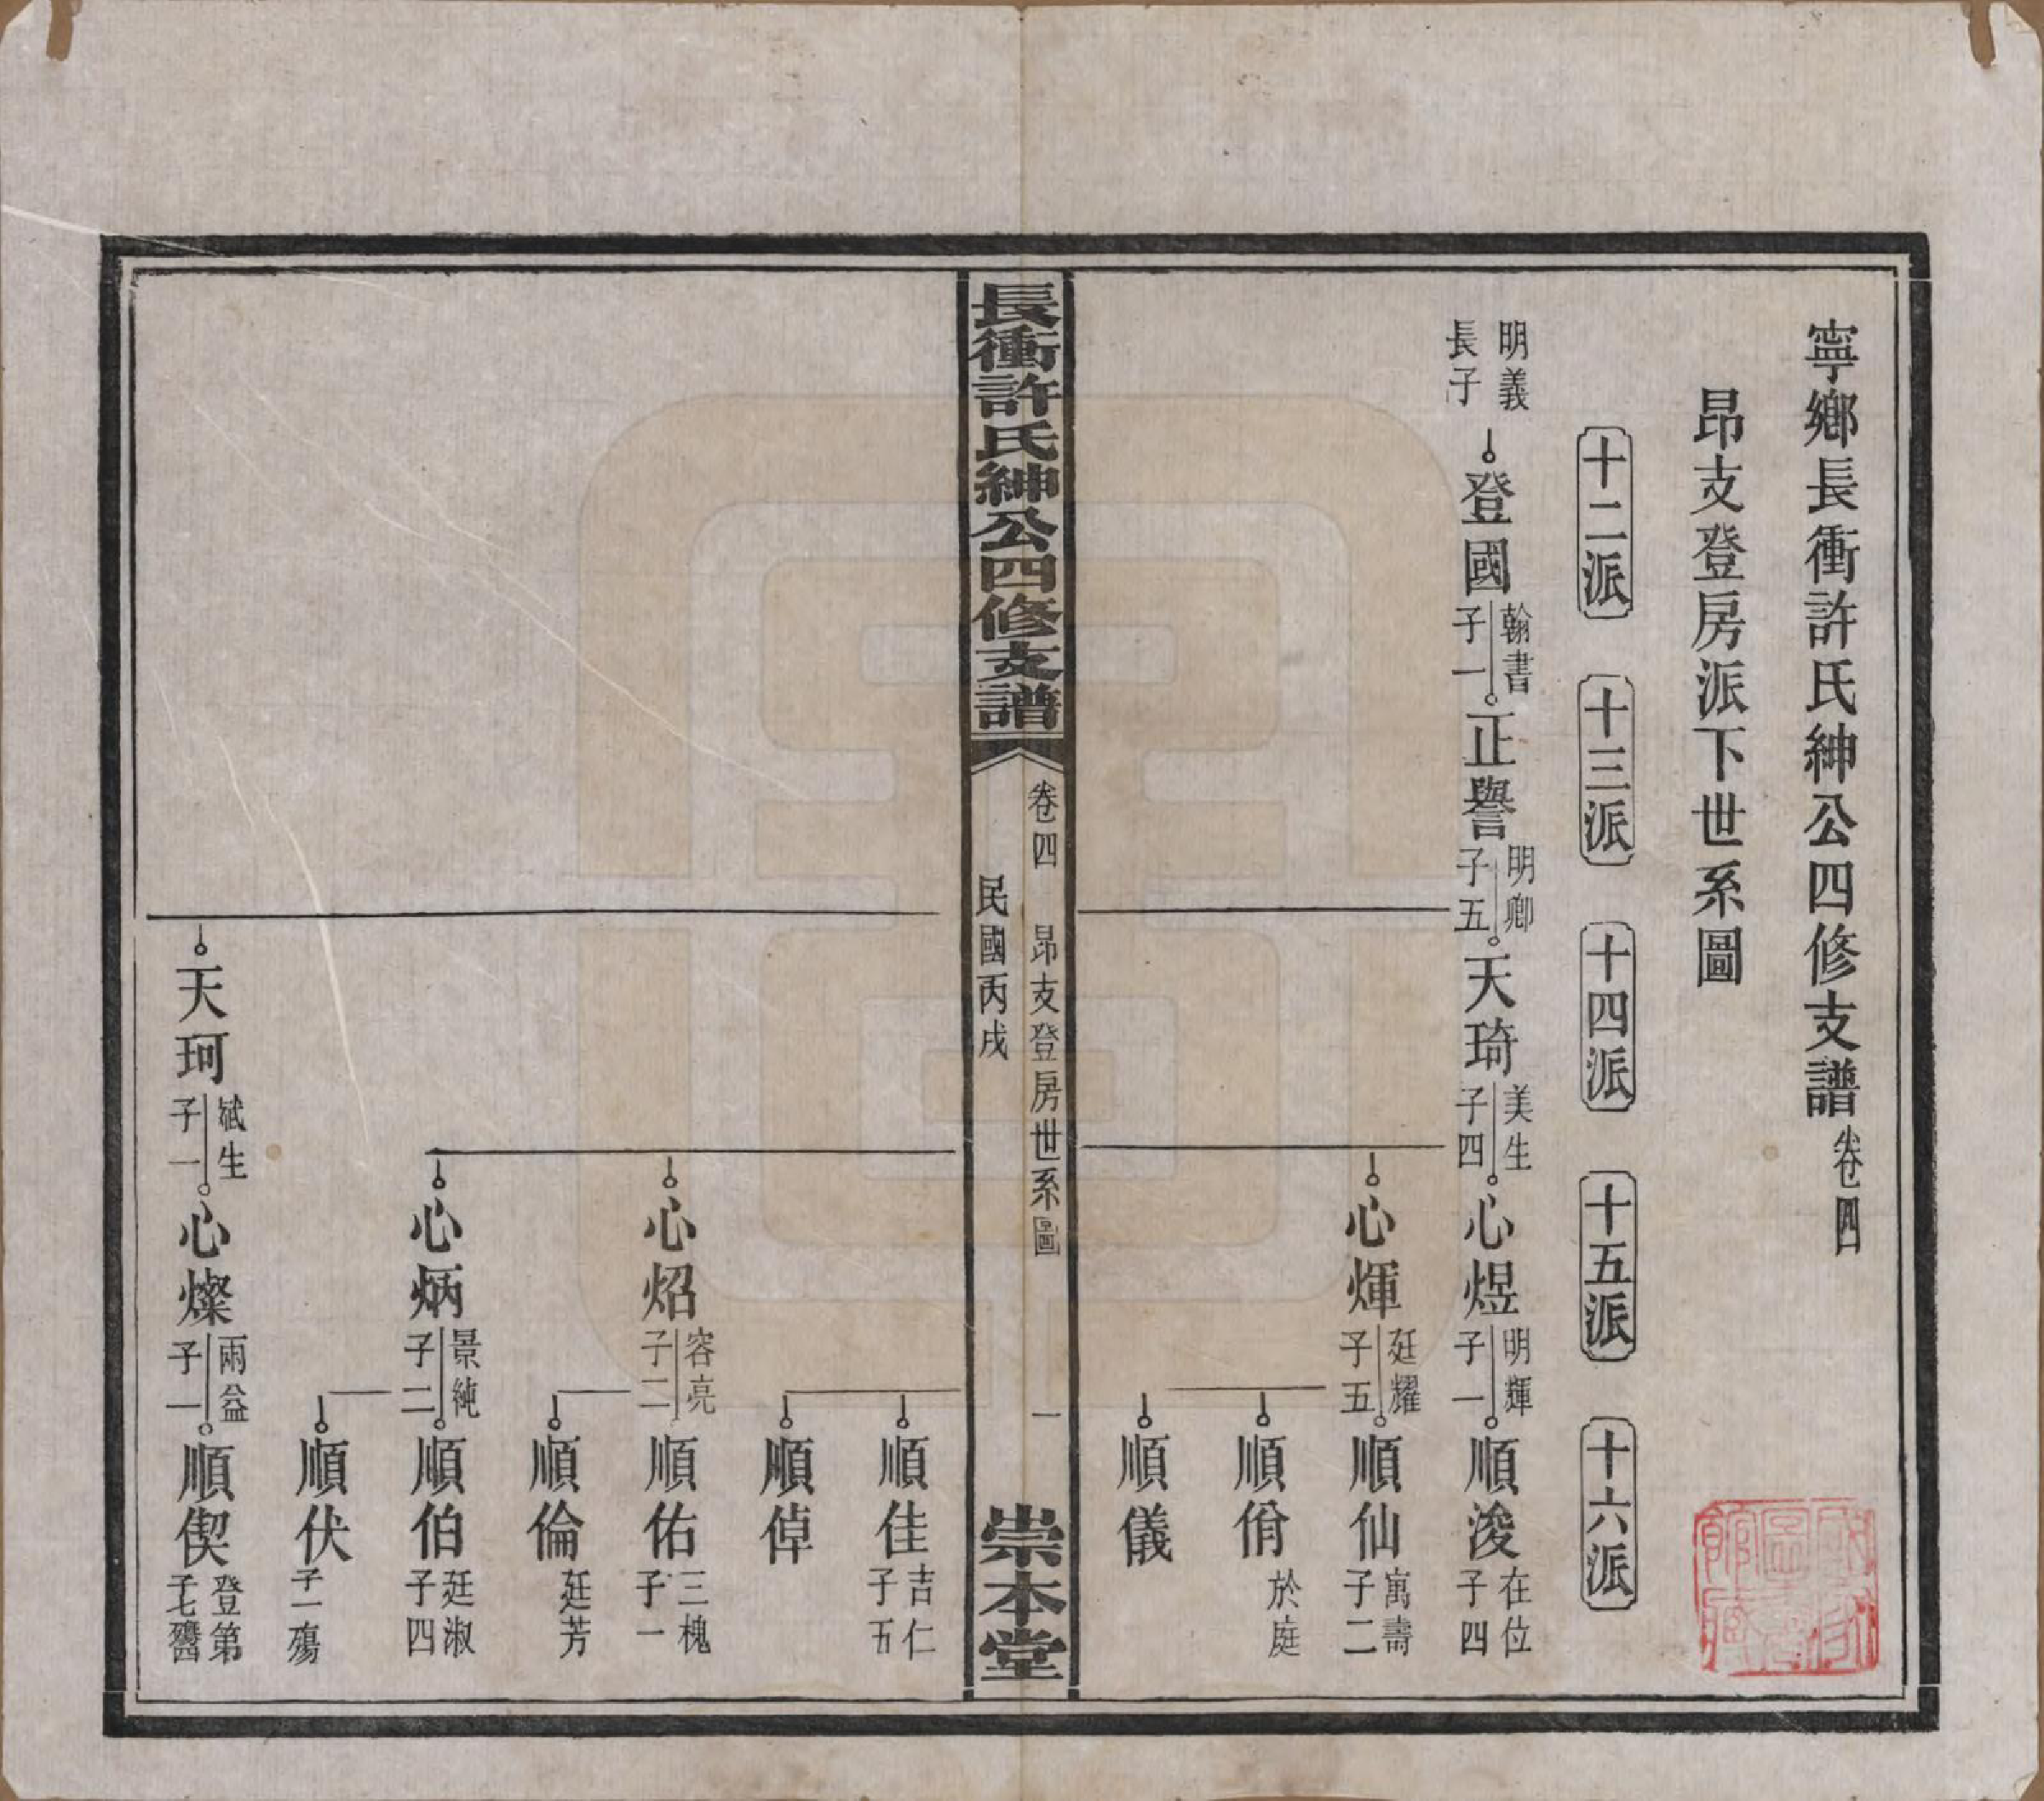 寧鄉長衝許氏紳公四修支譜卷四
昂支登房派下世系圖
十二派
十三派
十四派
十五派
十六派
明義
長子
登國
翰書
子一
正譽
明卿
子五
天琦
美生
子四
心煜
明輝
子一
順浚
在位
子四
心煇
廷耀
子五
順仙
寓壽
子二
順佾
於庭
順儀
長衝許氏紳公四修支譜
卷四 昂支登房世系圖 一
民國丙戌
崇本堂
順佳
吉仁
子五
順倬
心炤
容亮
子二
順佑
三槐
子一
順倫
廷芳
心炳
景純
子二
順伯
廷淑
子四
順伏
子一殤
天珂
斌生
子一
心燦
兩益
子一
順偰
登第
子七
國家圖書館藏